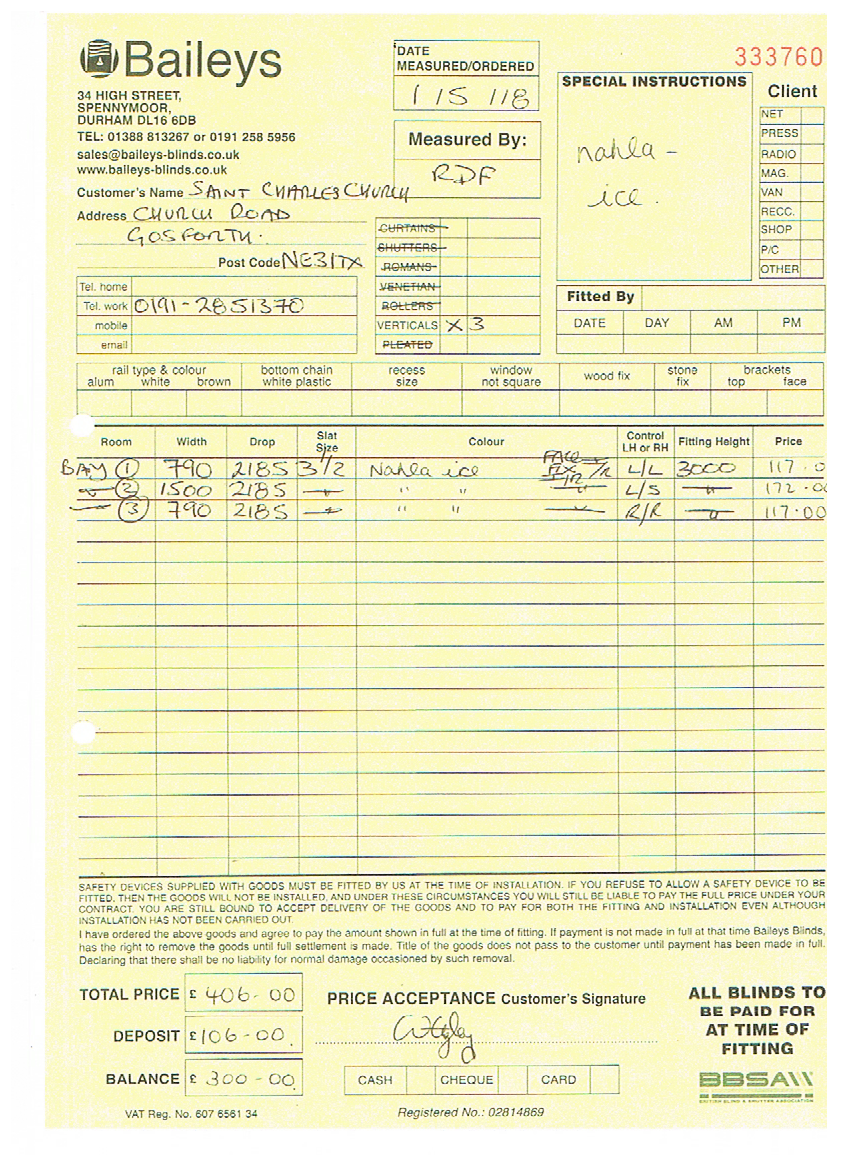 Baileys
34 HIGH STREET,
SPENNYMOOR,
DURHAM DL16 6DB
TEL: 01388 813267 or 0191 258 5956
sales@baileys-blinds.co.uk
www.baileys-blinds.co.uk
DATE
MEASURED/ORDERED
1/5/18
Measured By:
RDF
333760
SPECIAL INSTRUCTIONS
nahla -
ice.
Client
NET
PRESS
RADIO
MAG.
VAN
RECC.
SHOP
P/C
OTHER
Customer's Name SAINT CHARLES CHURCH
Address CHURCH ROAD
GOSFORTH.
Post Code NE3 1TX
Tel. home
Tel. work 0191-2851370
mobile
email
CURTAINS
SHUTTERS
ROMANS
VENETIAN
ROLLERS
VERTICALS X 3
PLEATED
Fitted By
DATE DAY AM PM
rail type & colour bottom chain recess window wood fix stone brackets
alum white brown white plastic size not square fix top face
Room Width Drop Slat Size Colour Control LH or RH Fitting Height Price
BAY 1 790 2185 3 1/2 Nahla ice FACE FIX L/L 3000 117.0
2 1500 2185 " " L/S 172.00
3 790 2185 " " R/R 117.00
SAFETY DEVICES SUPPLIED WITH GOODS MUST BE FITTED BY US AT THE TIME OF INSTALLATION. IF YOU REFUSE TO ALLOW A SAFETY DEVICE TO BE
FITTED, THEN THE GOODS WILL NOT BE INSTALLED, AND UNDER THESE CIRCUMSTANCES YOU WILL STILL BE LIABLE TO PAY THE FULL PRICE UNDER YOUR
CONTRACT. YOU ARE STILL BOUND TO ACCEPT DELIVERY OF THE GOODS AND TO PAY FOR BOTH THE FITTING AND INSTALLATION EVEN ALTHOUGH
INSTALLATION HAS NOT BEEN CARRIED OUT.
I have ordered the above goods and agree to pay the amount shown in full at the time of fitting. If payment is not made in full at that time Baileys Blinds,
has the right to remove the goods until full settlement is made. Title of the goods does not pass to the customer until payment has been made in full.
Declaring that there shall be no liability for normal damage occasioned by such removal.
TOTAL PRICE £ 406-00
DEPOSIT £ 106-00.
BALANCE £ 300-00.
PRICE ACCEPTANCE Customer's Signature
CASH CHEQUE CARD
ALL BLINDS TO
BE PAID FOR
AT TIME OF
FITTING
BBSA
BRITISH BLIND & SHUTTER ASSOCIATION
VAT Reg. No. 607 6561 34
Registered No.: 02814869